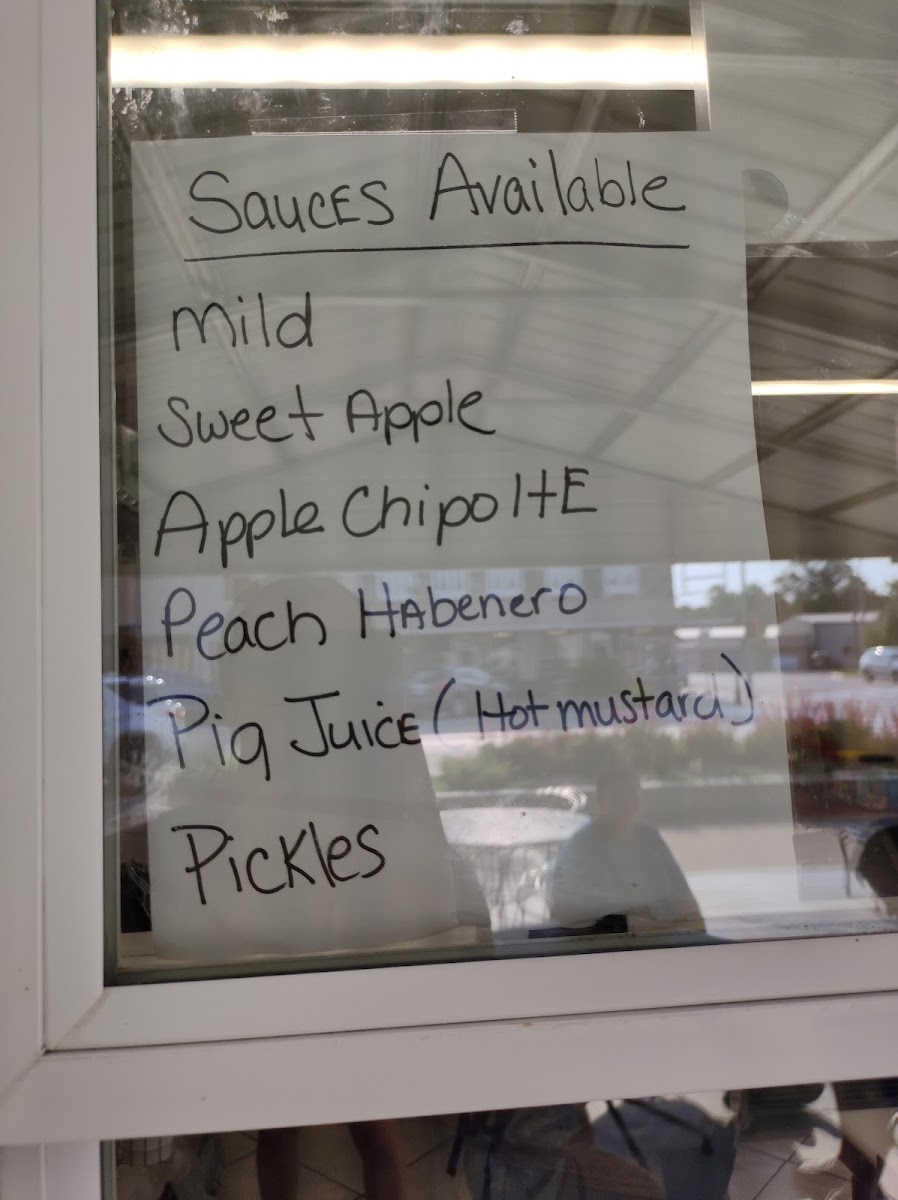 Sauces Available
Mild
Sweet Apple
Apple Chipolte
Peach Habenero
Pig Juice (Hot mustard)
Pickles